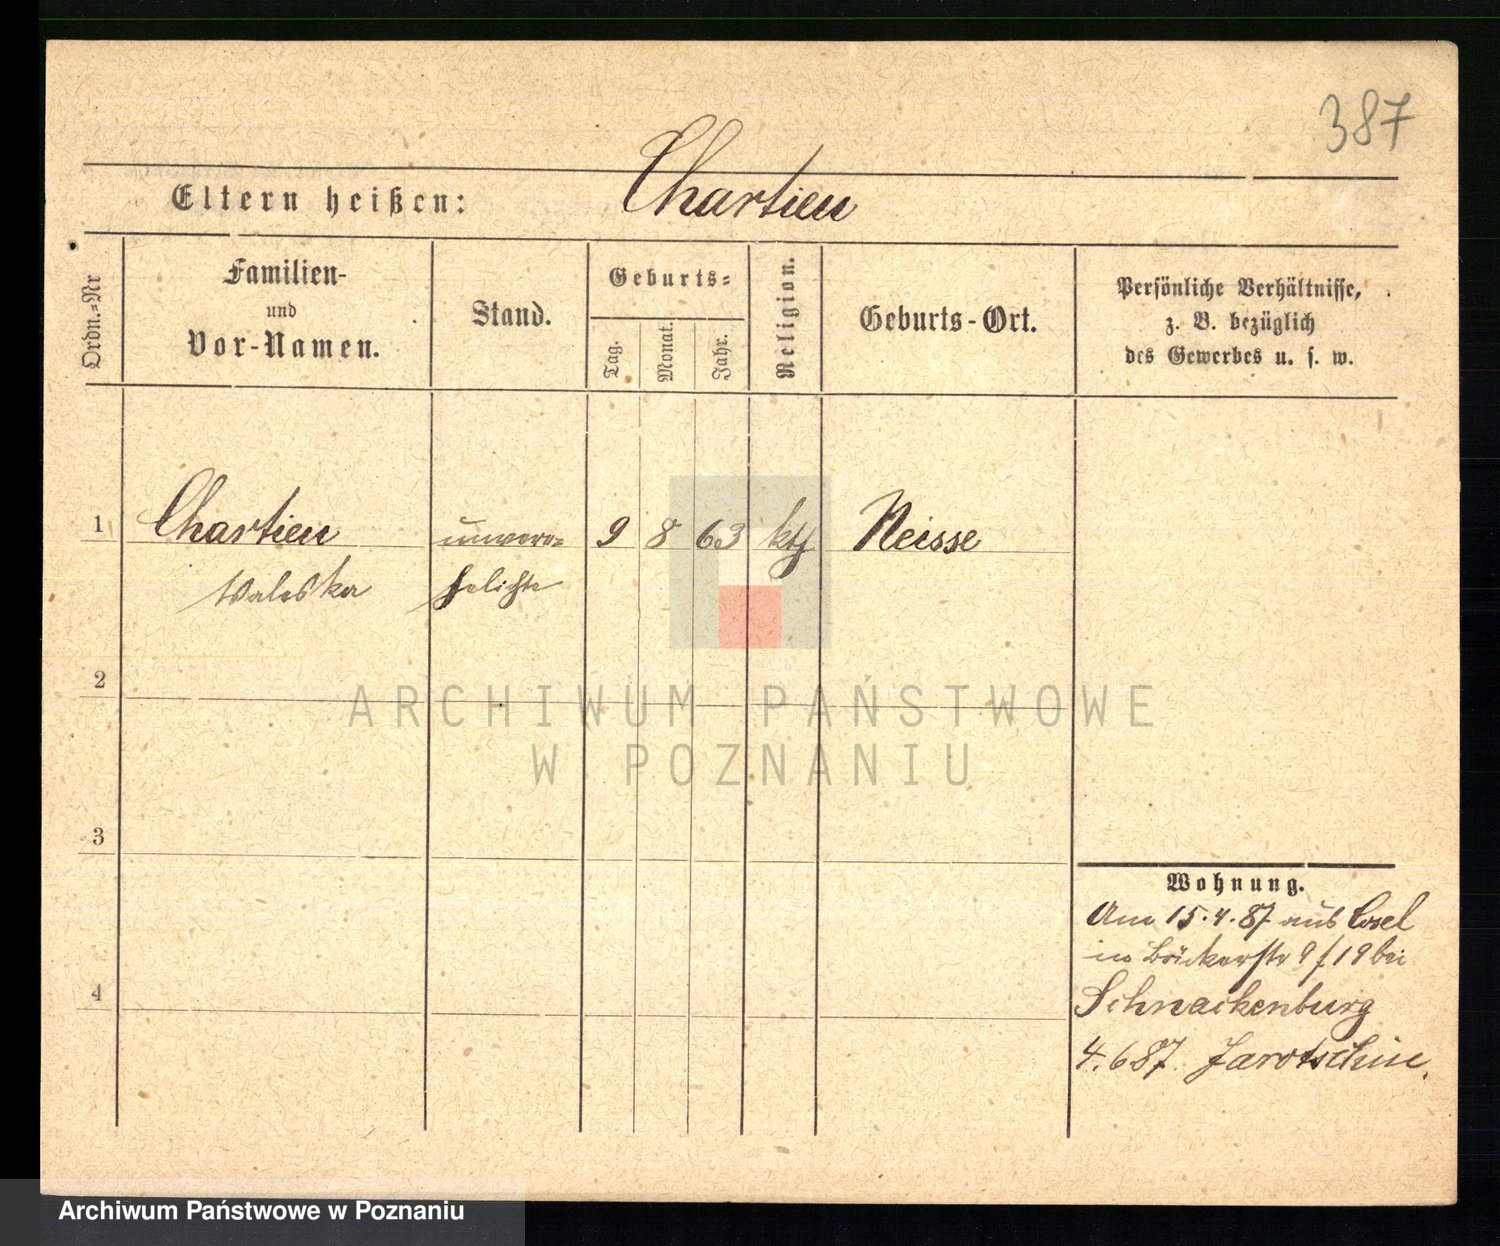 387
Eltern heißen: Chartieu
Ordn.-Nr
Familien-
und
Vor-Namen.
Stand.
Geburts-
Tag.
Monat.
Jahr.
Religion.
Geburts-Ort.
Persönliche Verhältnisse,
z. B. bezüglich
des Gewerbes u. s. w.
1 Chartieu unvere= 9 8 63 kth Neisse
Valeska helichte
2
ARCHIWUM PAŃSTWOWE
W POZNANIU
3
Wohnung.
Am 15.4.87 aus Cosel
in Bäckerstr 9/19 bei
4
Schnackenburg
4.6 87. Jarotschin.
Archiwum Państwowe w Poznaniu